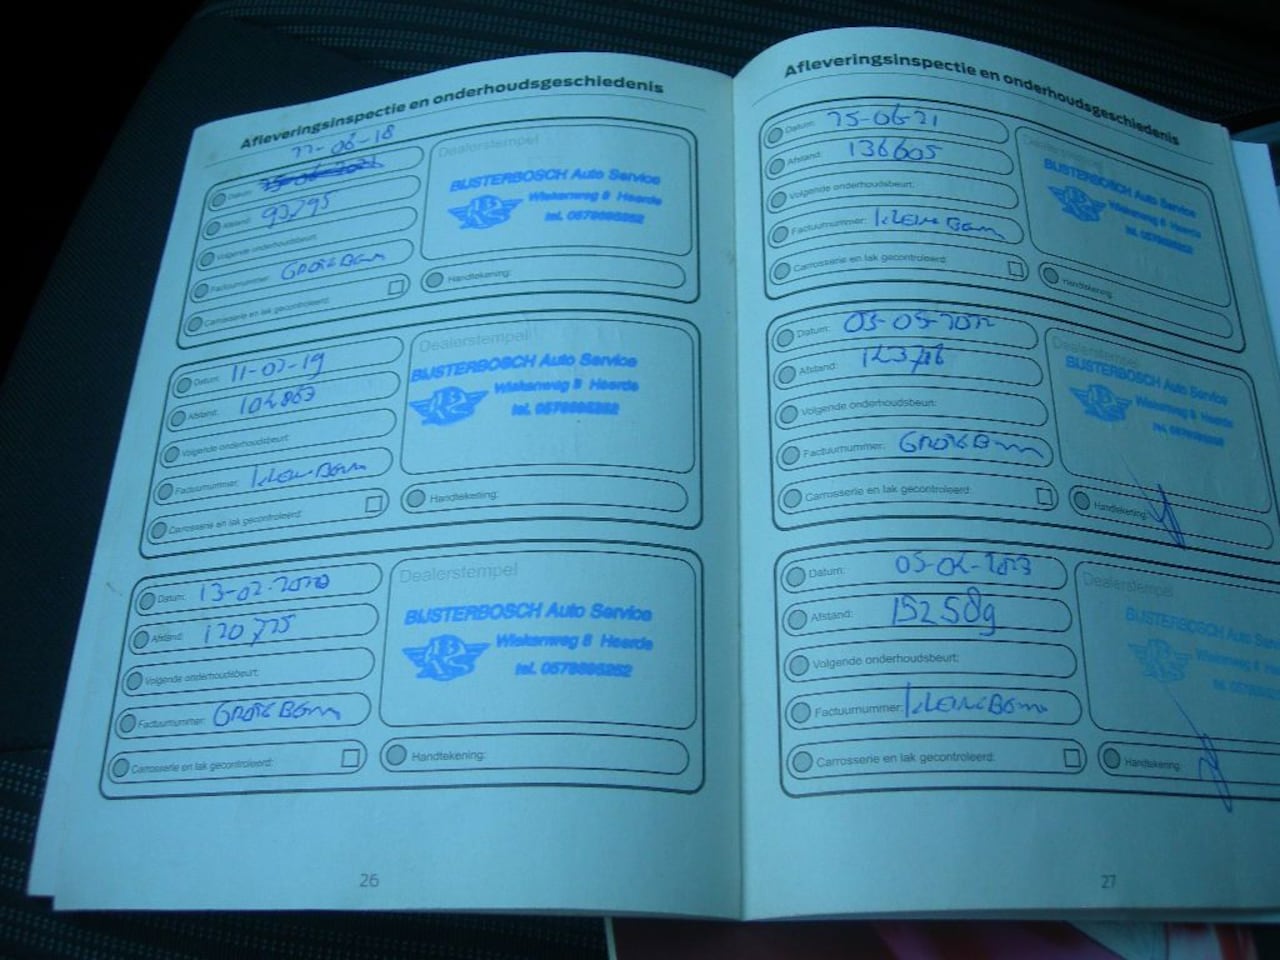 Afleveringsinspectie en onderhoudsgeschiedenis
22-06-18
Datum:
Afstand: 93795
Volgende onderhoudsbeurt:
Factuurnummer: Grote Beurt
Carrosserie en lak gecontroleerd:
Dealerstempel
BIJSTERBOSCH Auto Service
Wiekenweg 8 Heerde
tel. 0578695252
Handtekening:
Datum: 11-02-19
Afstand: 104863
Volgende onderhoudsbeurt:
Factuurnummer: Kleine Beurt
Carrosserie en lak gecontroleerd:
Dealerstempel
BIJSTERBOSCH Auto Service
Wiekenweg 8 Heerde
tel. 0578695252
Handtekening:
Datum: 13-02-2020
Afstand: 120775
Volgende onderhoudsbeurt:
Factuurnummer: Grote Beurt
Carrosserie en lak gecontroleerd:
Dealerstempel
BIJSTERBOSCH Auto Service
Wiekenweg 8 Heerde
tel. 0578695252
Handtekening:
26
Afleveringsinspectie en onderhoudsgeschiedenis
Datum: 25-06-21
Afstand: 136605
Volgende onderhoudsbeurt:
Factuurnummer: Kleine Beurt
Carrosserie en lak gecontroleerd:
Dealerstempel
BIJSTERBOSCH Auto Service
Wiekenweg 8 Heerde
tel. 0578695252
Handtekening:
Datum: 03-05-2022
Afstand:
Volgende onderhoudsbeurt:
Factuurnummer: Grote Beurt
Carrosserie en lak gecontroleerd:
Dealerstempel
BIJSTERBOSCH Auto Service
Wiekenweg 8 Heerde
tel. 0578695252
Handtekening:
Datum: 05-04-2023
Afstand: 152589
Volgende onderhoudsbeurt:
Factuurnummer: Kleine Beurt
Carrosserie en lak gecontroleerd:
Dealerstempel
BIJSTERBOSCH Auto
Wiekenweg 8
tel.
Handtekening:
27